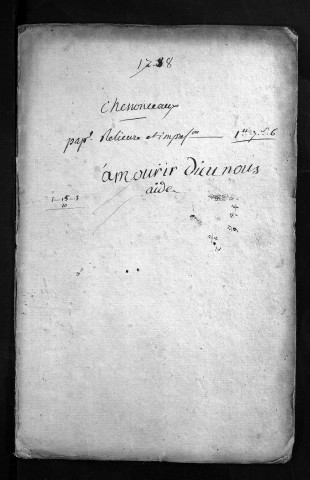 1738
chenonceaux
pap.r Relieure et impos.on 1tt 7s 6
à mourir Dieu nous
aide
1-15-3
10